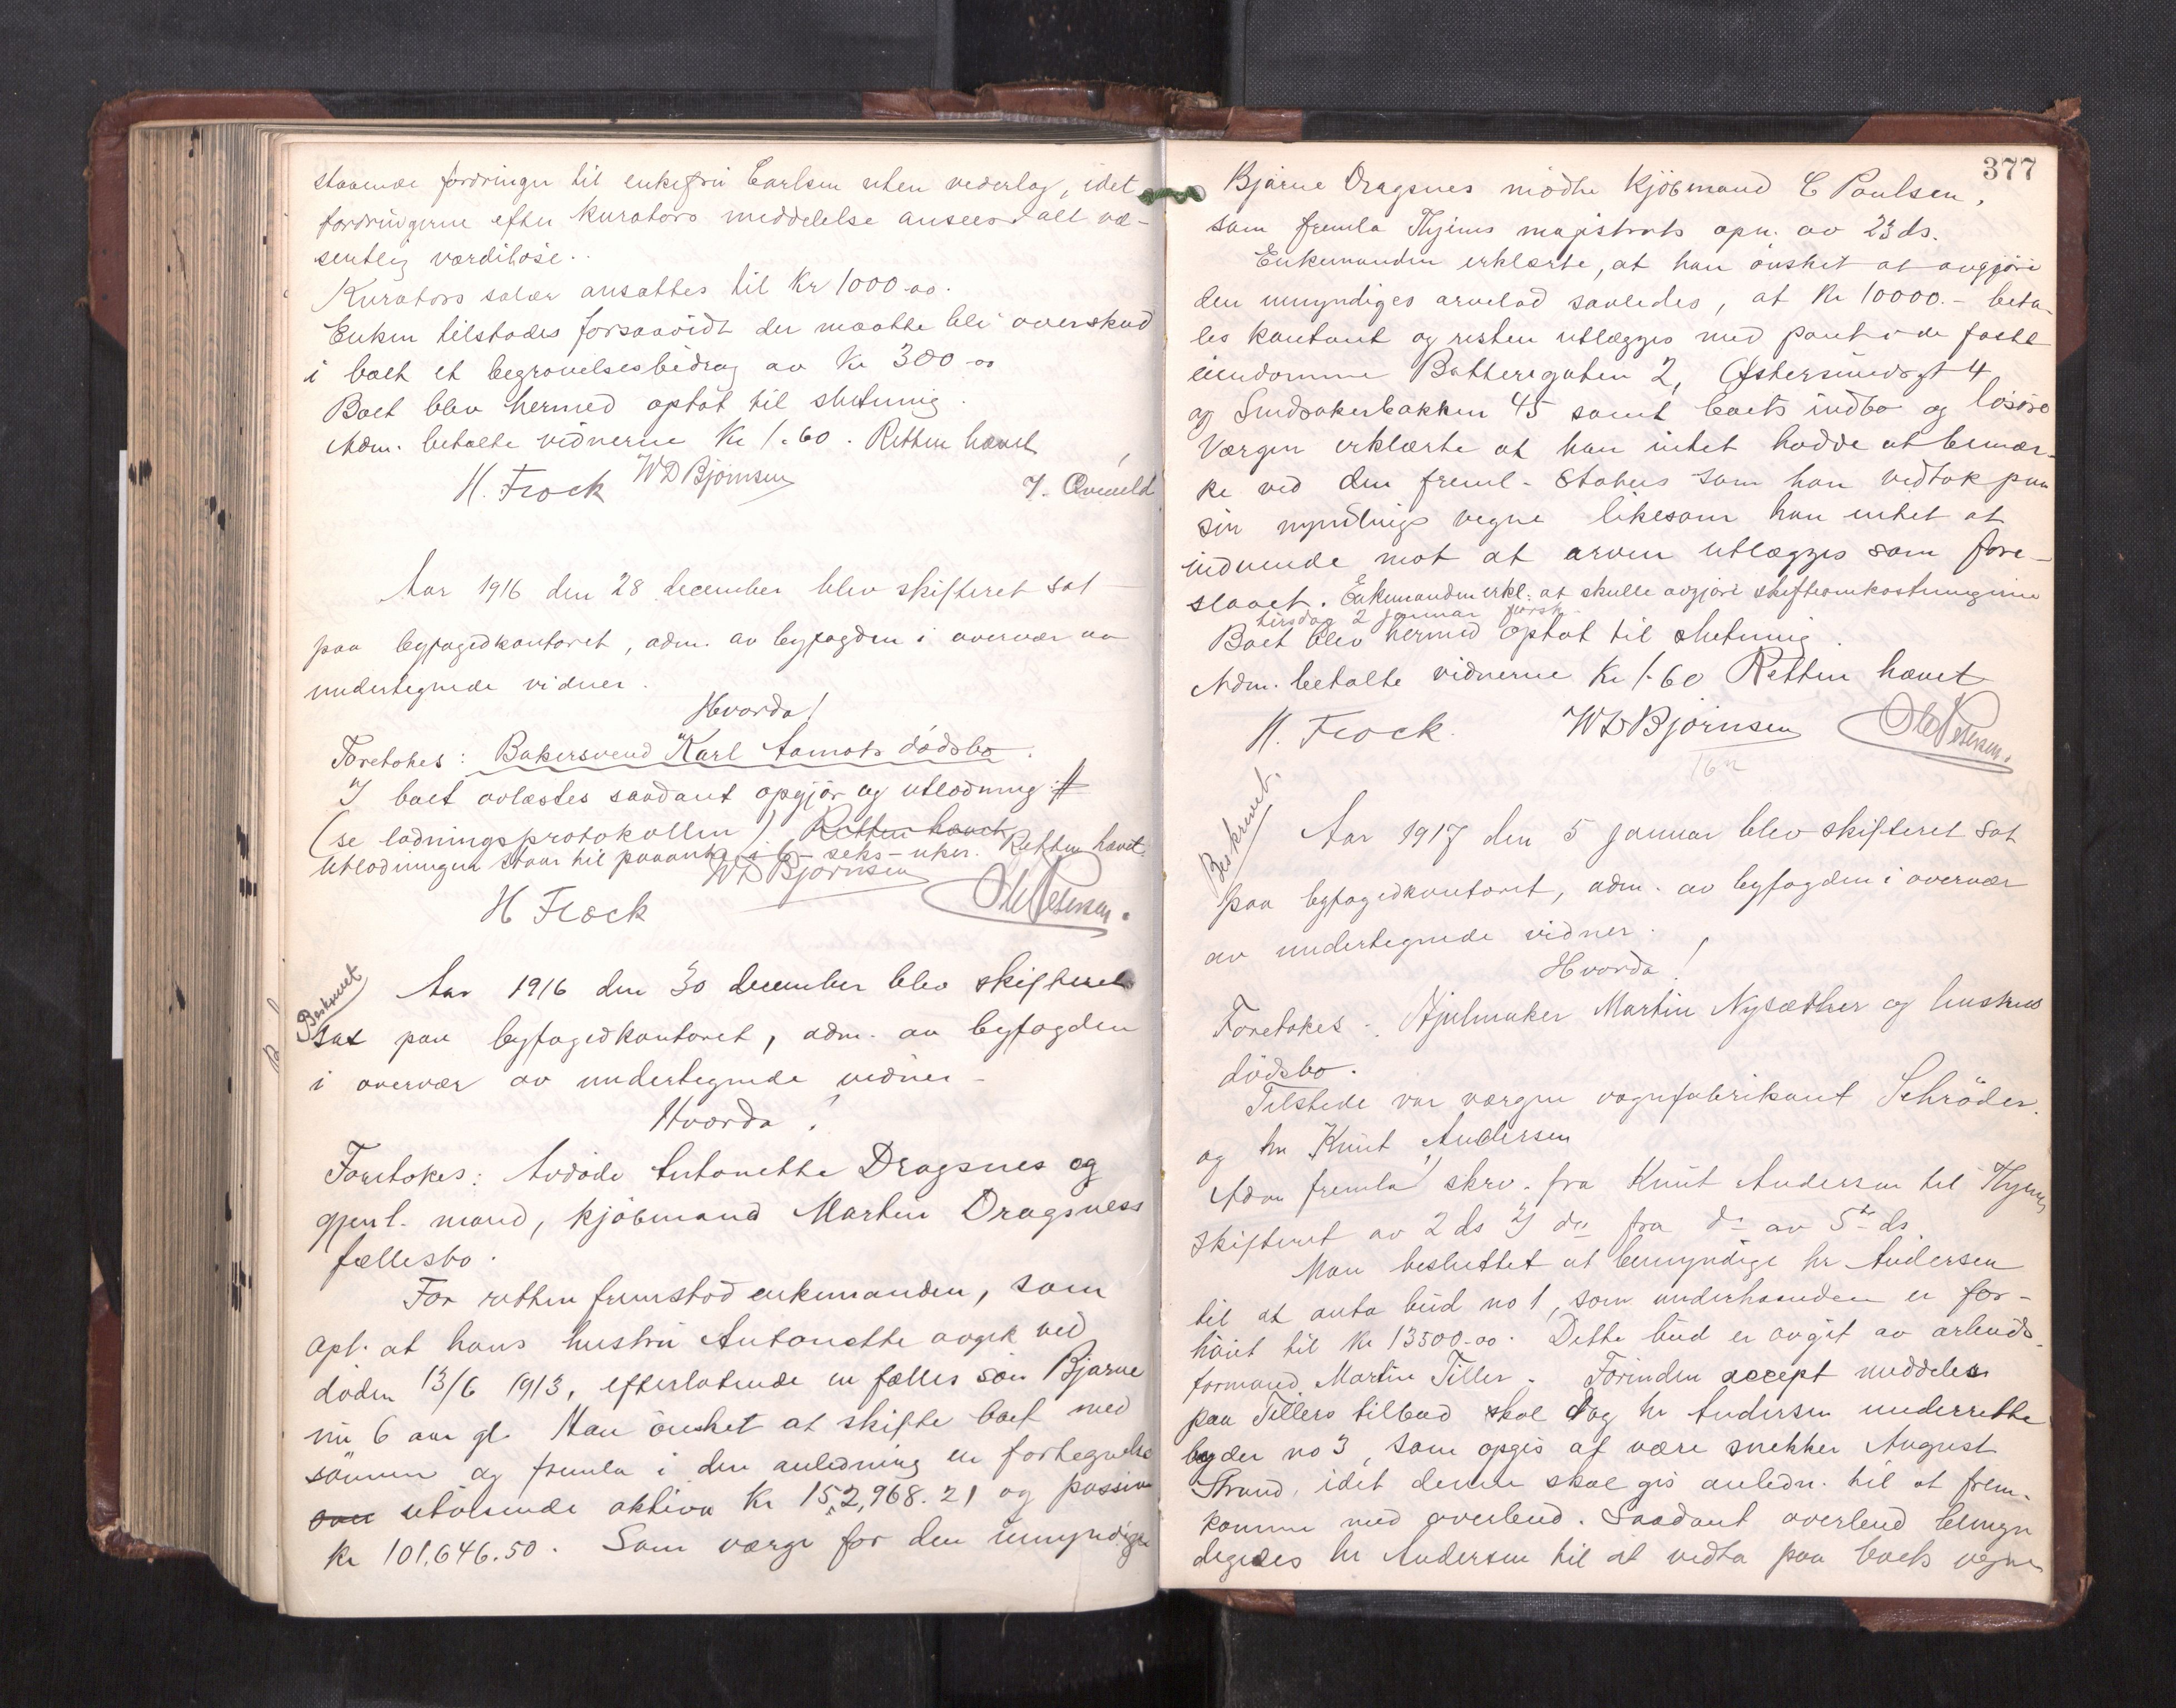 staaende fordringer til enkefru Carlsen uten vederlag, idet
fordringerne efter kurators meddelelse ansees alt væ-
sentlig værdiløse.
Kurators salær ansattes til Kr 1000.00.
Enken tilstodes forsaavidt der maatte bli overskud
i boet et begravelsesbidrag av Kr 300.00
Boet blev hermed optat til slutning.
Adm. betalte vidnerne Kr 1.60. Retten hævet
H. Frock WD Bjørnsen
Aar 1916 den 28 december blev skifteret sat
paa byfogedkontoret, adm. av byfogden i overvær av
undertegnede vidner.
Hvorda!
Foretokes: Bakersvend Karl Aamots dödsbo.
I boet avlæstes saadant opgjör og utlodning:
(se lodningsprotokollen) Retten hævet
Utlodningen staar til paaanke i 6 - seks - uker. Retten hævet.
WD Bjørnsen
H Frock Ole Petersen.
Beskrevet
Aar 1916 den 30 december blev skifteret
sat paa byfogedkontoret, adm. av byfogden
i overvær av undertegnede vidner -
Hvorda!
Foretokes: Avdöde Antonette Dragsnes og
gjenl. mand, kjöbmand Martin Dragsness
fællesbo.
For retten fremstod enkemanden, som
opl. at hans hustru Antonette avgik ved
döden 13/6 1913, efterlatende en fælles sön Bjarne
nu 6 aar gl. Han önsket at skifte boet med
sönnen og fremla i den anledning en fortegnelse
over utvisende aktiva Kr 152,968.21 og passiva
Kr 101.646.50. Som værge for den umyndige
377
Bjarne Dragsnes mödte Kjöbmand C Paulsen,
som fremla Thjems magistrats opn. av 23 ds.
Enkemanden erklærte, at han önsket at avgjöre
den umyndiges arvelod saaledes, at Kr 10000.- beta-
les kontant og resten utlægges med pant i de faste
eiendomme Batterigaten 2, Østersundsgt 4
og Sundsakerbakken 45 samt boets indbo og lösöre
Værgen erklærte at han intet hadde at bemær-
ke ved den freml. Status som han vedtok paa
sin myndlings vegne likesom han intet at
indvende mot at arven utlægges som fore-
slaaet. Enkemanden erkl. at skulle avgjöre skifteomkostningerne
tirsdag 2 januar
Boet blev hermed optat til slutning.
Adm. betalte vidnerne Kr 1.60 Retten hævet
H. Frock. WD Bjørnsen Ole Petersen.
Beskrevet.
Aar 1917 den 5 januar blev skifteret sat
paa byfogedkontoret, adm. av byfogden i overvær
av undertegnede vidner.
Hvorda!
Foretokes: Hjulmaker Martin Nysæther og hustrus
dödsbo.
Tilstede var værgen vognfabrikant Schröder.
og hr Knut Andersen
Adm fremla skrv. fra Knut Andersen til Thjems
skifteret av 2 ds 2) do fra do av 5te ds
Man besluttet at bemyndige hr Andersen
til at anta bud no 1, som underhaanden er for-
höiet til Kr 13500.00. Dette bud er avgit av arbeids-
formand Martin Tiller. Forinden accept meddeles
paa Tillers tilbud skal dog hr Andersen underrette
byder no 3, som opgis at være snekker August
Strand, idet denne skal gis anledn. til at frem-
komme med overbud. Saadant overbud bemyn
digedes hr Andersen til at vedta paa boets vegne